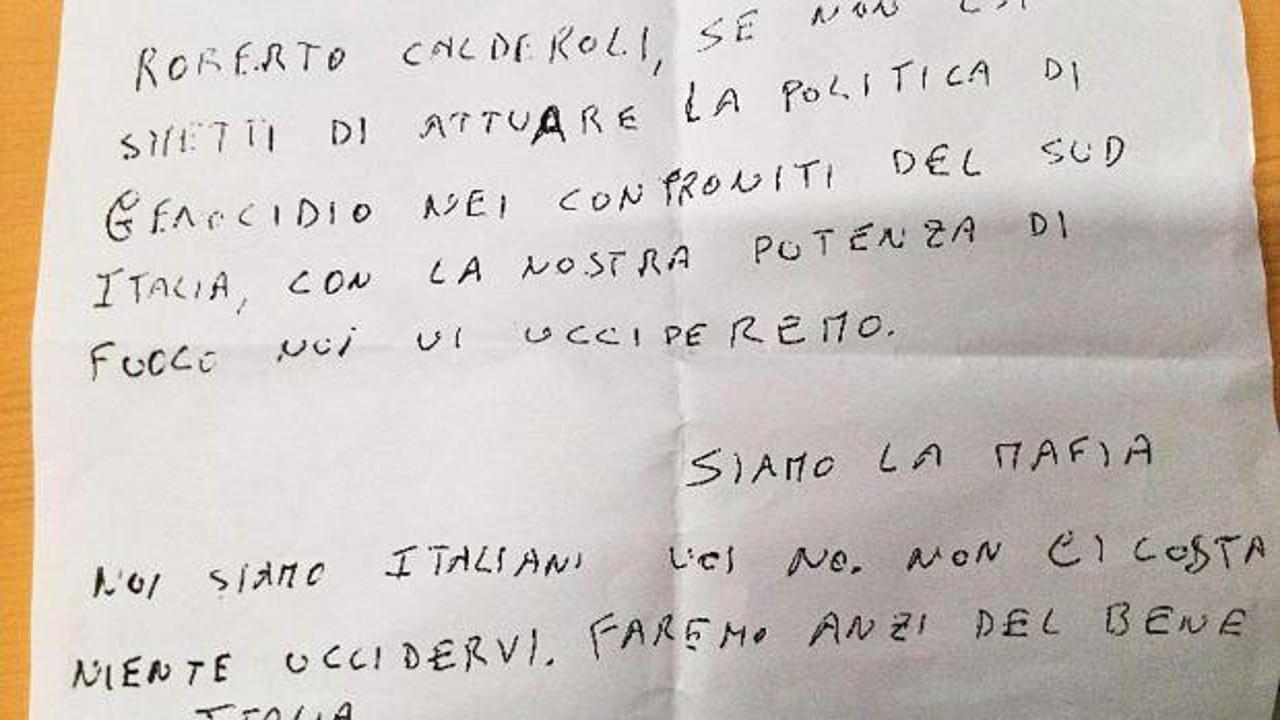 ROBERTO CALDEROLI, SE NON
SMETTI DI ATTUARE LA POLITICA DI
GENOCIDIO NEI CONFRONITI DEL SUD
ITALIA, CON LA NOSTRA POTENZA DI
FUOCO NOI VI UCCIDEREMO.
SIAMO LA MAFIA
NOI SIAMO ITALIANI VOI NO. NON CI COSTA
NIENTE UCCIDERVI. FAREMO ANZI DEL BENE
ITALIA